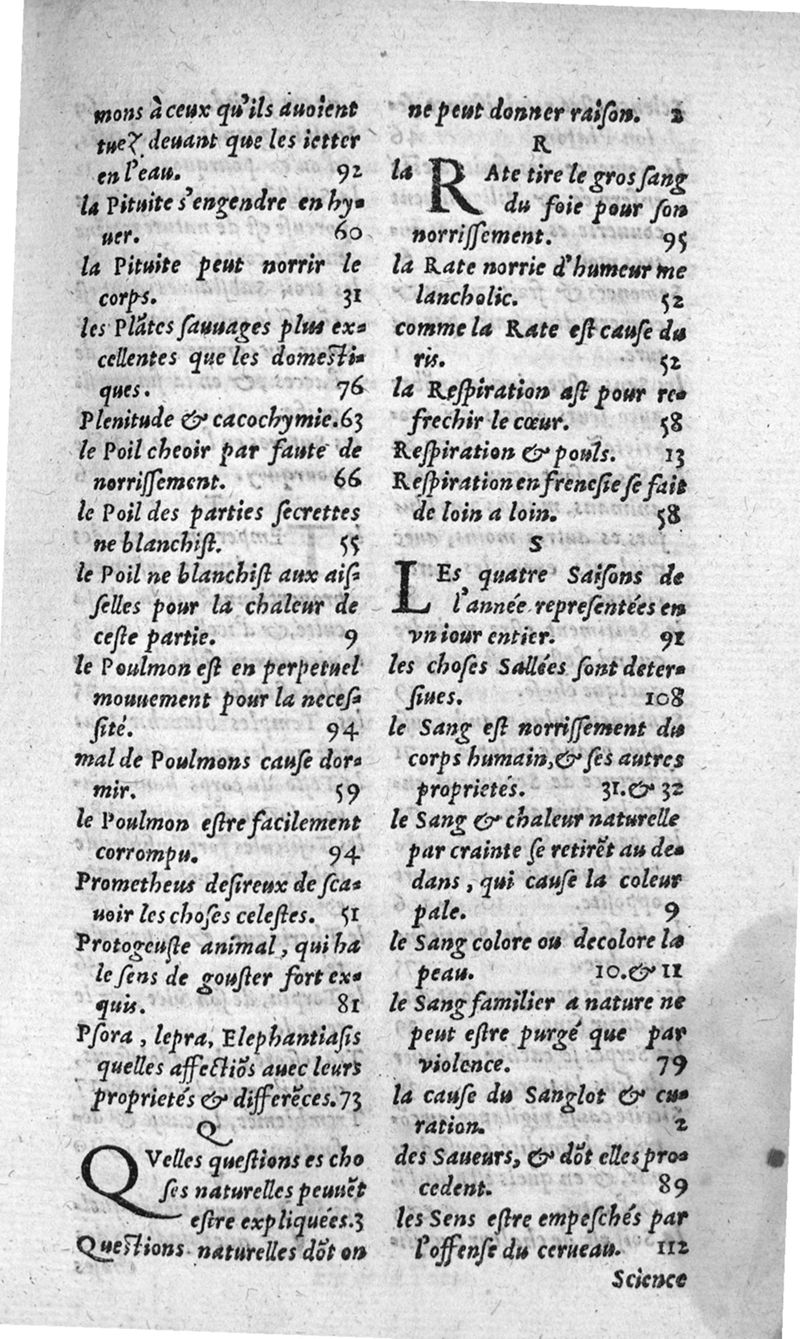 mons à ceux qu'ils auoient
tuez deuant que les ietter
en l'eau. 92
la Pituite s'engendre en hy-
uer. 60
la Pituite peut norrir le
corps. 31
les Plãtes sauuages plus ex-
cellentes que les domesti-
ques. 76
Plenitude & cacochymie. 63
le Poil cheoir par faute de
norrissement. 66
le Poil des parties secrettes
ne blanchist. 55
le Poil ne blanchist aux ais-
selles pour la chaleur de
ceste partie. 9
le Poulmon est en perpetuel
mouuement pour la neces-
sité. 94
mal de Poulmons cause dor-
mir. 59
le Poulmon estre facilement
corrompu. 94
Prometheus desireux de sca-
uoir les choses celestes. 51
Protogeuste animal, qui ha
le sens de gouster fort ex-
quis. 81
Psora, lepra, Elephantiasis
quelles affectiõs auec leurs
proprietés & differẽces. 73
Q
QVelles questions es cho
ses naturelles peuuẽt
estre expliquées. 3
Questions naturelles dõt on
ne peut donner raison. 2
R
la RAte tire le gros sang
du foie pour son
norrissement. 95
la Rate norrie d'humeur me
lancholic. 52
comme la Rate est cause du
ris. 52
la Respiration ast pour re-
frechir le cœur. 58
Respiration & pouls. 13
Respiration en frenesie se fait
de loin a loin. 58
S
LEs quatre Saisons de
l'année representées en
vn iour entier. 91
les choses Sallées sont deter-
siues. 108
le Sang est norrissement du
corps humain, & ses autres
proprietés. 31. & 32
le Sang & chaleur naturelle
par crainte se retirẽt au de-
dans, qui cause la coleur
pale. 9
le Sang colore ou decolore la
peau. 10. & 11
le Sang familier a nature ne
peut estre purgé que par
violence. 79
la cause du Sanglot & cu-
ration. 2
des Saueurs, & dõt elles pro-
cedent. 89
les Sens estre empeschés par
l'offense du cerueau. 112
Science